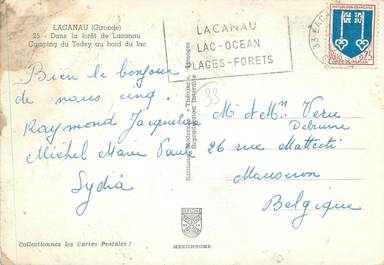 LACANAU (Gironde)
25 - Dans la forêt de Lacanau
Camping du Tedey au bord du lac
LACANAU
LAC-OCEAN
PLAGES-FORETS
33 LAC
0,25
33
Bien le bonjour
de nous cinq.
Raymond Jacqueline
Michel Marie Paule
Lydia
Mr & Mme Veru
Debrume
26 rue Matteoti
Mouscron
Belgique
Collectionnez les Cartes Postales !
MEXICHROME